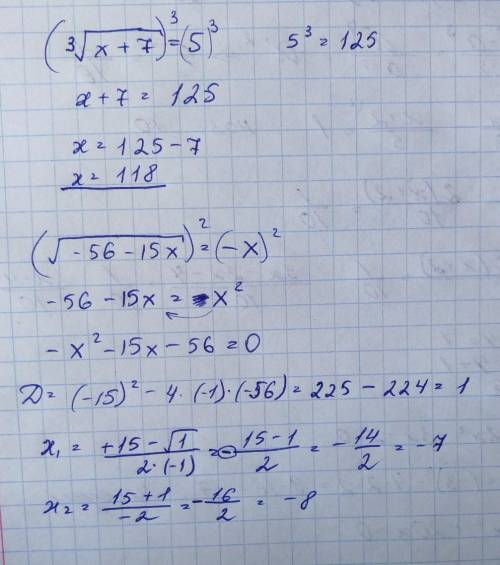 (∛(x + 7))³ = (5)³   5³ = 125
x + 7 = 125
x = 125 - 7
x = 118
(√(-56 - 15x))² = (-x)²
-56 - 15x = x²
-x² - 15x - 56 = 0
D = (-15)² - 4 · (-1) · (-56) = 225 - 224 = 1
x₁ = (+15 - √1)/(2 · (-1)) = - (15 - 1)/2 = - 14/2 = -7
x₂ = (15 + 1)/(-2) = - 16/2 = -8